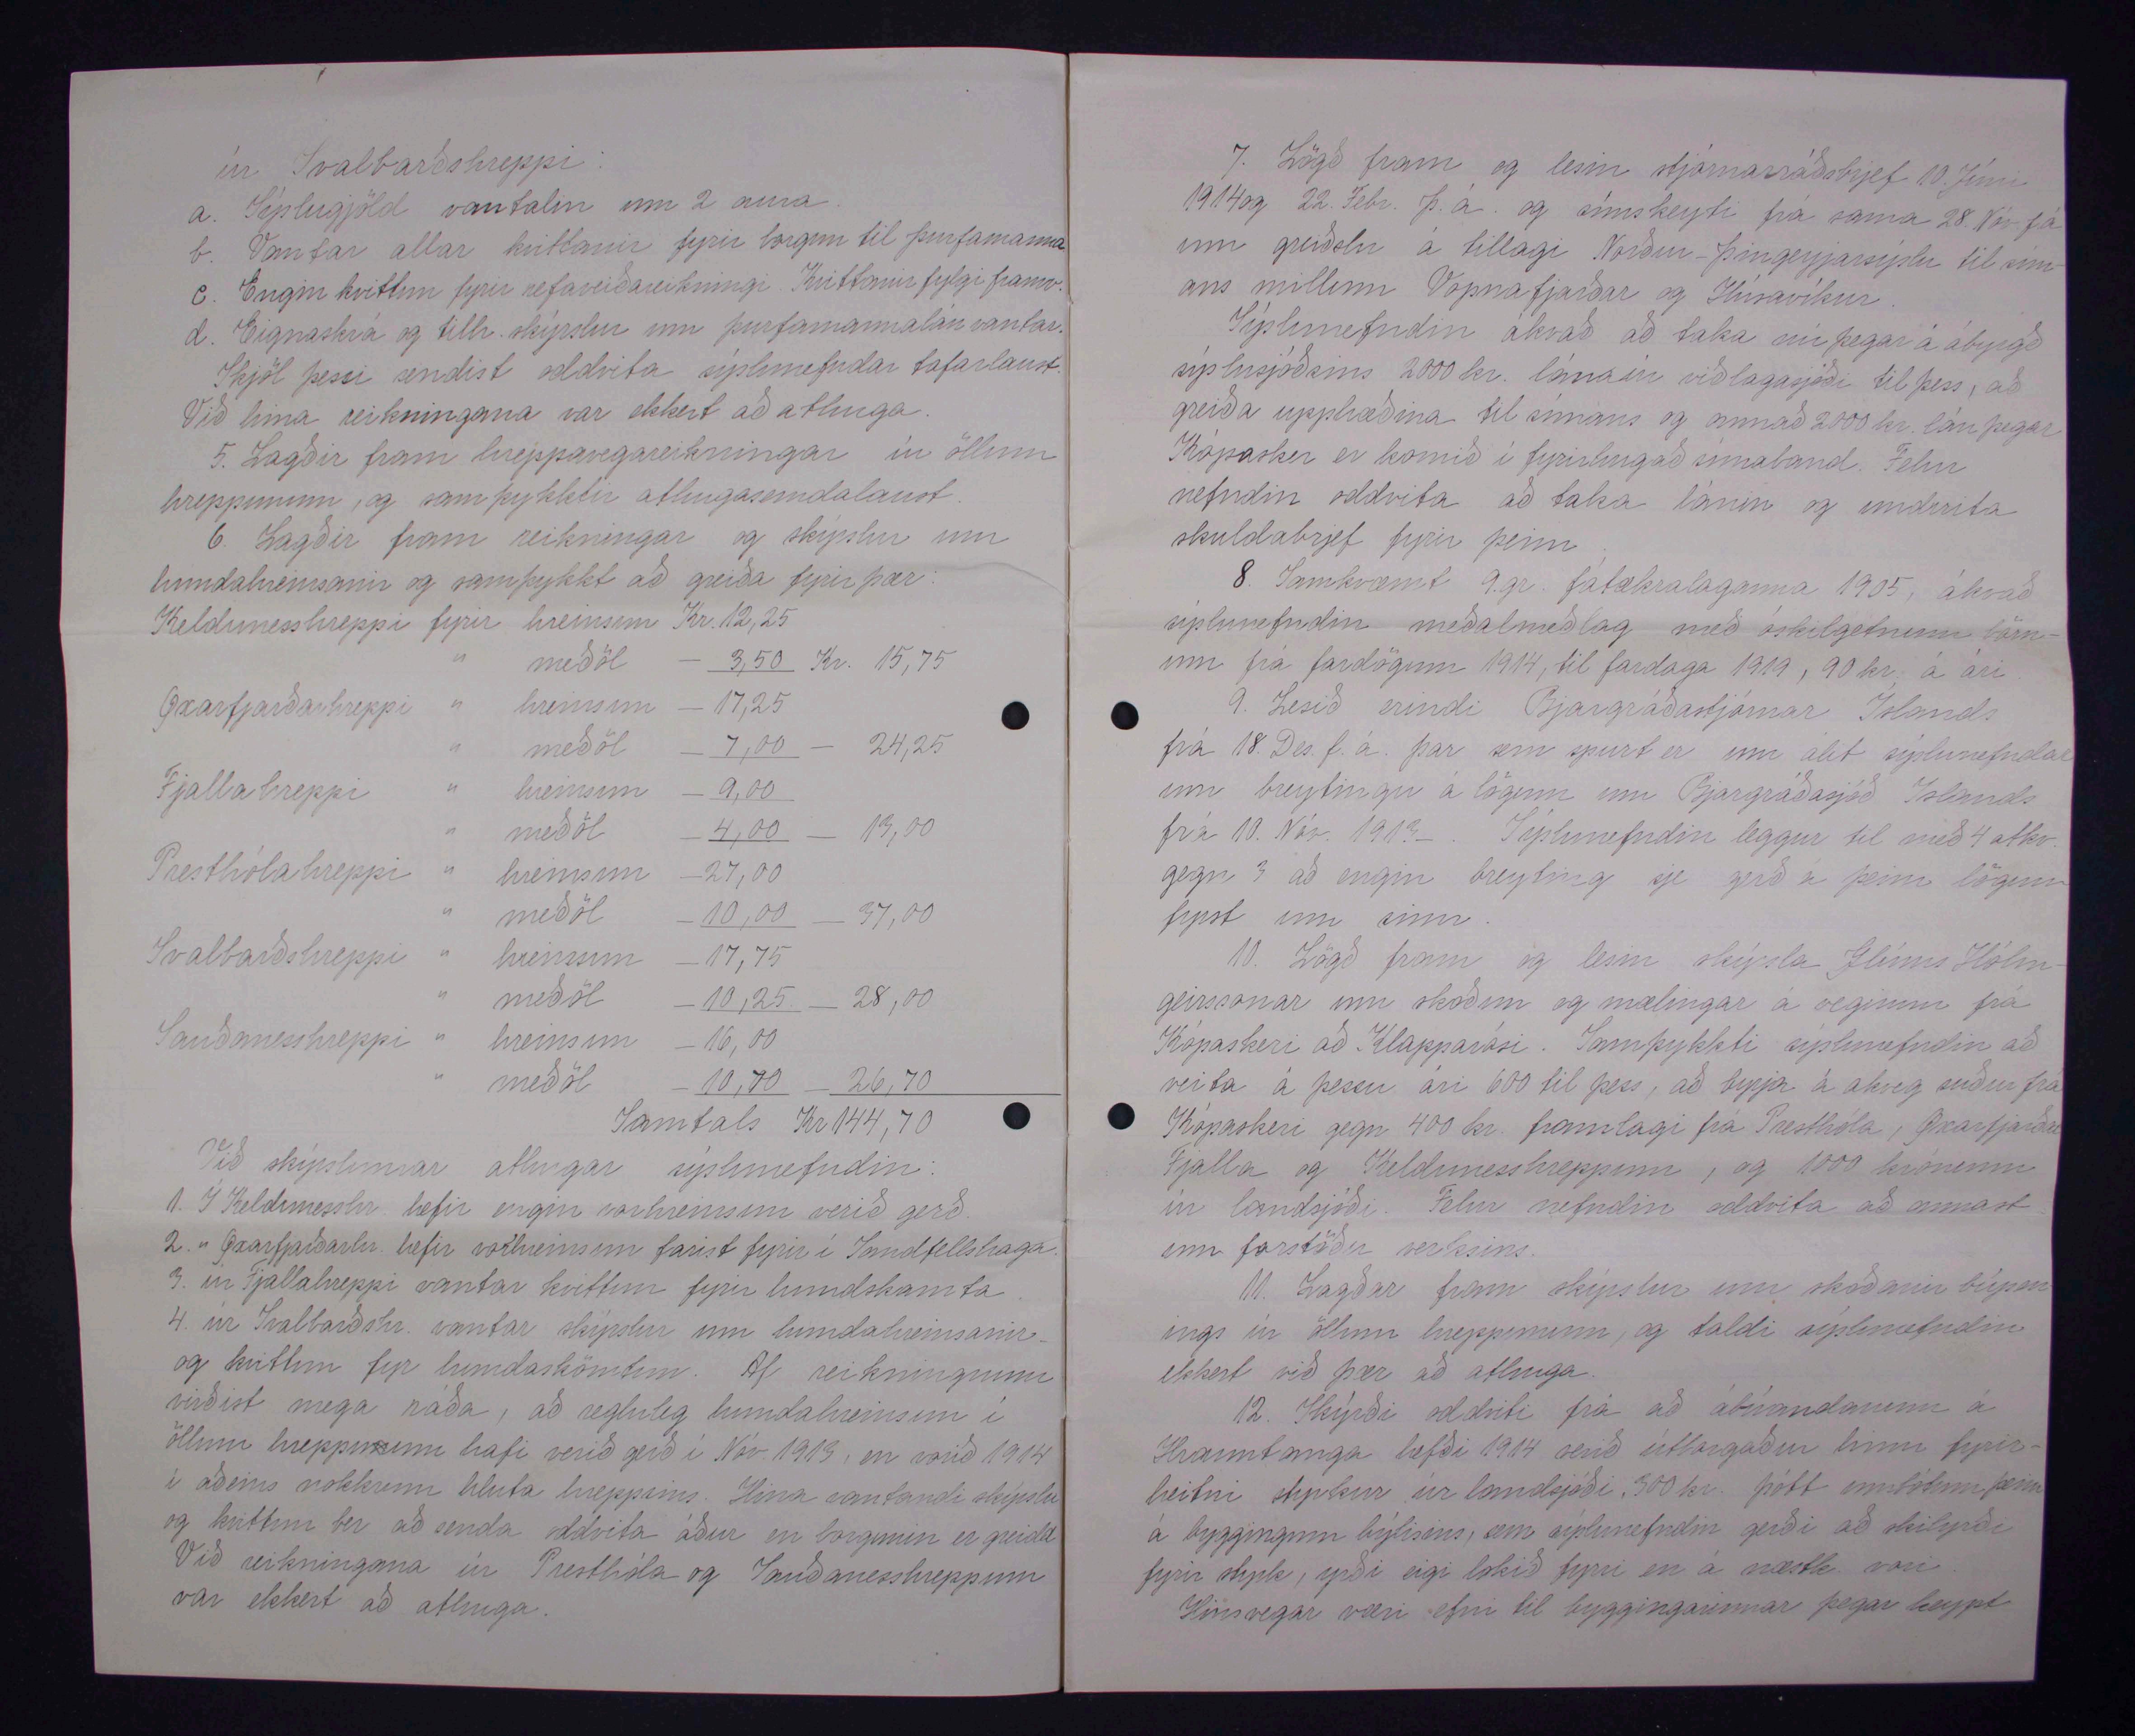 úr Svalbarðshreppi:
a. Sýslugjöld vantalin um 2 aura.
b. Vantar allar kvittanir fyrir borgun til þurfamanna
c. Engin kvittun fyrir refaveiðareikningi. Kvittanir fylgi framv.
d. Eignaskrá og tillr. skýrslur um þurfamannalán vantar.
Skjöl þessi sendist oddvita sýslunefndar tafarlaust.
Við hina reikningana var ekkert að athuga.
5. Lagðir fram hreppavegareikningar úr öllum
hreppunum, og samþykktir athugasemdalaust.
6. Lagðir fram reikningar og skýrslur um
hundahreinsanir og samþykkt að greiða fyrir þær:
Keldunesshreppi fyrir hreinsun Kr. 12,25
" meðöl - 3,50 Kr. 15,75
Øxarfjarðarhreppi " hreinsun - 17,25
" meðöl - 7,00 - 24,25
Fjallahreppi " hreinsun - 9,00
" meðöl - 4,00 - 13,00
Presthólahreppi " hreinsun - 27,00
" meðöl - 10,00 - 37,00
Svalbarðshreppi " hreinsun - 17,75
" meðöl - 10,25 - 28,00
Sauðanesshreppi " hreinsun - 16,00
" meðöl - 10,70 - 26,70
Samtals Kr 144,70
Við skýrslurnar athugar sýslunefndin:
1. Í Keldunesshr. hefir engin vorhreinsun verið gerð.
2. " Øxarfjarðarhr. hefir vorhreinsun farist fyrir í Sandfellshaga.
3. úr Fjallahreppi vantar kvittun fyrir hundskamta.
4. úr Svalbarðshr. vantar skýrslur um hundahreinsanir
og kvittun fyr hundaskömtum. Af reikningnum
virðist mega ráða, að regluleg hundahreinsun í
öllum hreppnum hafi verið gerð í Nóv. 1913, en vorið 1914
í aðeins nokkrum hluta hreppsins. Hina vantandi skýrslu
og kvittun ber að senda oddvita áður en borgunin er greidd
Við reikningana úr Presthóla og Sauðanesshreppum
var ekkert að athuga.
7. Lögð fram og lesin stjórnarráðsbrjef 10. Júní
1914 og 22. Febr. þ.á. og símskeyti frá sama 28. Nóv. f.á
um greiðslu á tillagi Norður-Þingeyjarsýslu til sím-
ans millum Vopnafjarðar og Húsavíkur.
Sýslunefndin ákvað að taka nú þegar á ábyrgð
sýslusjóðsins 2000 kr. lán úr viðlagasjóði til þess, að
greiða upphæðina til símans og annað 2000 kr. lán þegar
Kópasker er komið í fyrirhugað símaband. Felur
nefndin oddvita að taka lánin og undirrita
skuldabrjef fyrir þeim.
8. Samkvæmt 9. gr. fátækralaganna 1905, ákvað
sýslunefndin meðalmeðlag með óskilgetnum börn-
um frá fardögum 1914, til fardaga 1919, 90 kr. á ári.
9. Lesið erindi Bjargráðastjórnar Islands
frá 18. Des. f.á. þar sem spurt er um álit sýslunefndar
um breytingu á lögum um Bjargráðasjóð Islands
frá 10. Nóv. 1913. Sýslunefndin leggur til með 4 atkv.
gegn 3 að engin breyting sje gerð á þeim lögum
fyrst um sinn.
10. Lögð fram og lesin skýrsla Glúms Hólm-
geirssonar um skoðun og mælingar á veginum frá
Kópaskeri að Klapparósi. Samþykkti sýslunefndin að
veita á þessu ári 600 til þess, að byrja á akveg suður frá
Kópaskeri gegn 400 kr. framlagi frá Presthóla, Øxarfjarðar
Fjalla og Keldunesshreppum, og 1000 krónum
úr landsjóði. Felur nefndin oddvita að annast
um forstöðu verksins.
11. Lagðar fram skýrslur um skoðanir búpen
ings úr öllum hreppunum, og taldi sýslunefndin
ekkert við þær að athuga.
12. Skýrði oddviti frá að ábúandanum á
Hrauntanga hefði 1914 verið útborgaður hinn fyrir-
heitni styrkur úr landsjóði 300 kr. þótt umbótum þeim
á byggingum býlisins, sem sýslunefndin gerði að skilyrði
fyrir styrk, yrði eigi lokið fyrri en á næstk. vori.
Hinsvegar væri efni til byggingarinnar þegar keypt